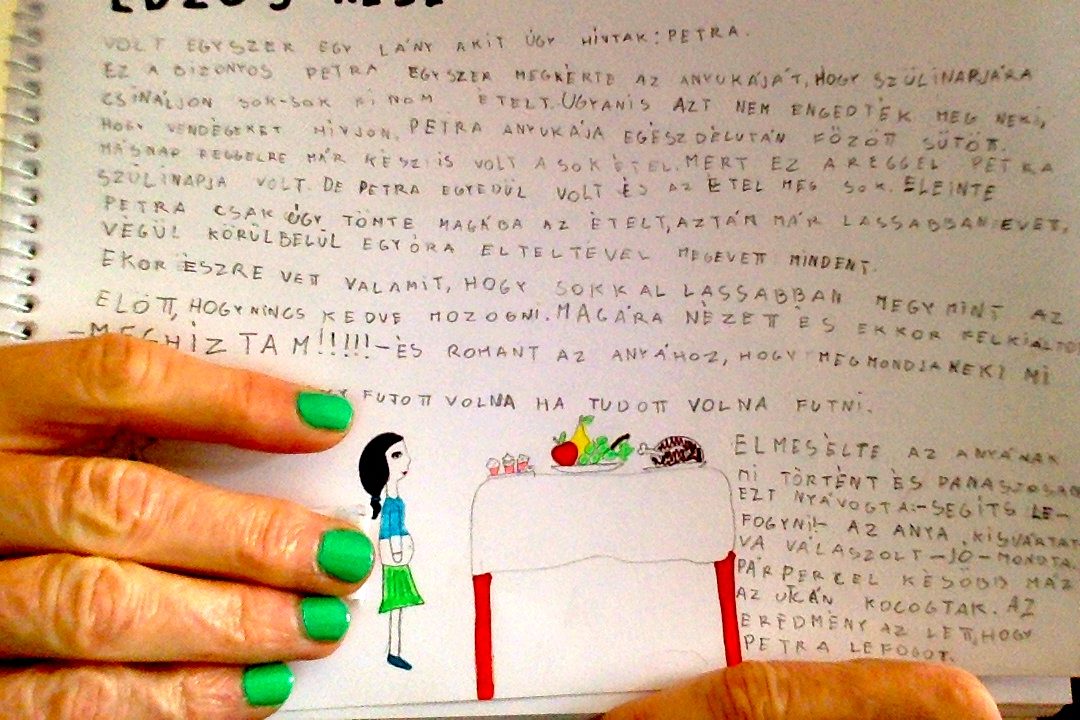 VOLT EGYSZER EGY LÁNY AKIT ÚGY HÍVTAK: PETRA.
EZ A BIZONYOS PETRA EGYSZER MEGKÉRTE AZ ANYUKÁJÁT, HOGY SZÜLINAPJÁRA
CSINÁLJON SOK-SOK FINOM ÉTELT. UGYANIS AZT NEM ENGEDTÉK MEG NEKI,
HOGY VENDÉGEKET HÍVJON. PETRA ANYUKÁJA EGÉSZ DÉLUTÁN FŐZÖTT SÜTÖTT.
MÁSNAP REGGELRE MÁR KÉSZ IS VOLT A SOK ÉTEL. MERT EZ A REGGEL PETRA
SZÜLINAPJA VOLT. DE PETRA EGYEDÜL VOLT ÉS AZ ÉTEL MEG SOK. ELEINTE
PETRA CSAK ÚGY TÖMTE MAGÁBA AZ ÉTELT, AZTÁN MÁR LASSABBAN EVET,
VÉGÜL KÖRÜLBELÜL EGY ÓRA ELTELTÉVEL MEGEVETT MINDENT.
EKOR ÉSZRE VETT VALAMIT, HOGY SOKKAL LASSABBAN MEGY MINT AZ
ELŐTT, HOGY NINCS KEDVE MOZOGNI. MAGÁRA NÉZETT ÉS EKKOR FELKIÁLTO
-MEGHÍZTAM!!!!!-ÉS ROHANT AZ ANYÁHOZ, HOGY MEGMONDJA NEKI MI
FUTOTT VOLNA HA TUDOTT VOLNA FUTNI.
ELMESÉLTE AZ ANYÁNAK
MI TÖRTÉNT ÉS PANASZOSAN
EZT NYÁVOGTA:-SEGÍTS LE-
FOGYNI!- AZ ANYA KISVÁRTAT
VA VÁLASZOLT-JÓ-MONDTA.
PÁR PERCEL KÉSŐBB MÁR
AZ UTCÁN KOCOGTAK. AZ
EREDMÉNY AZ LETT, HOGY
PETRA LEFOGOT.